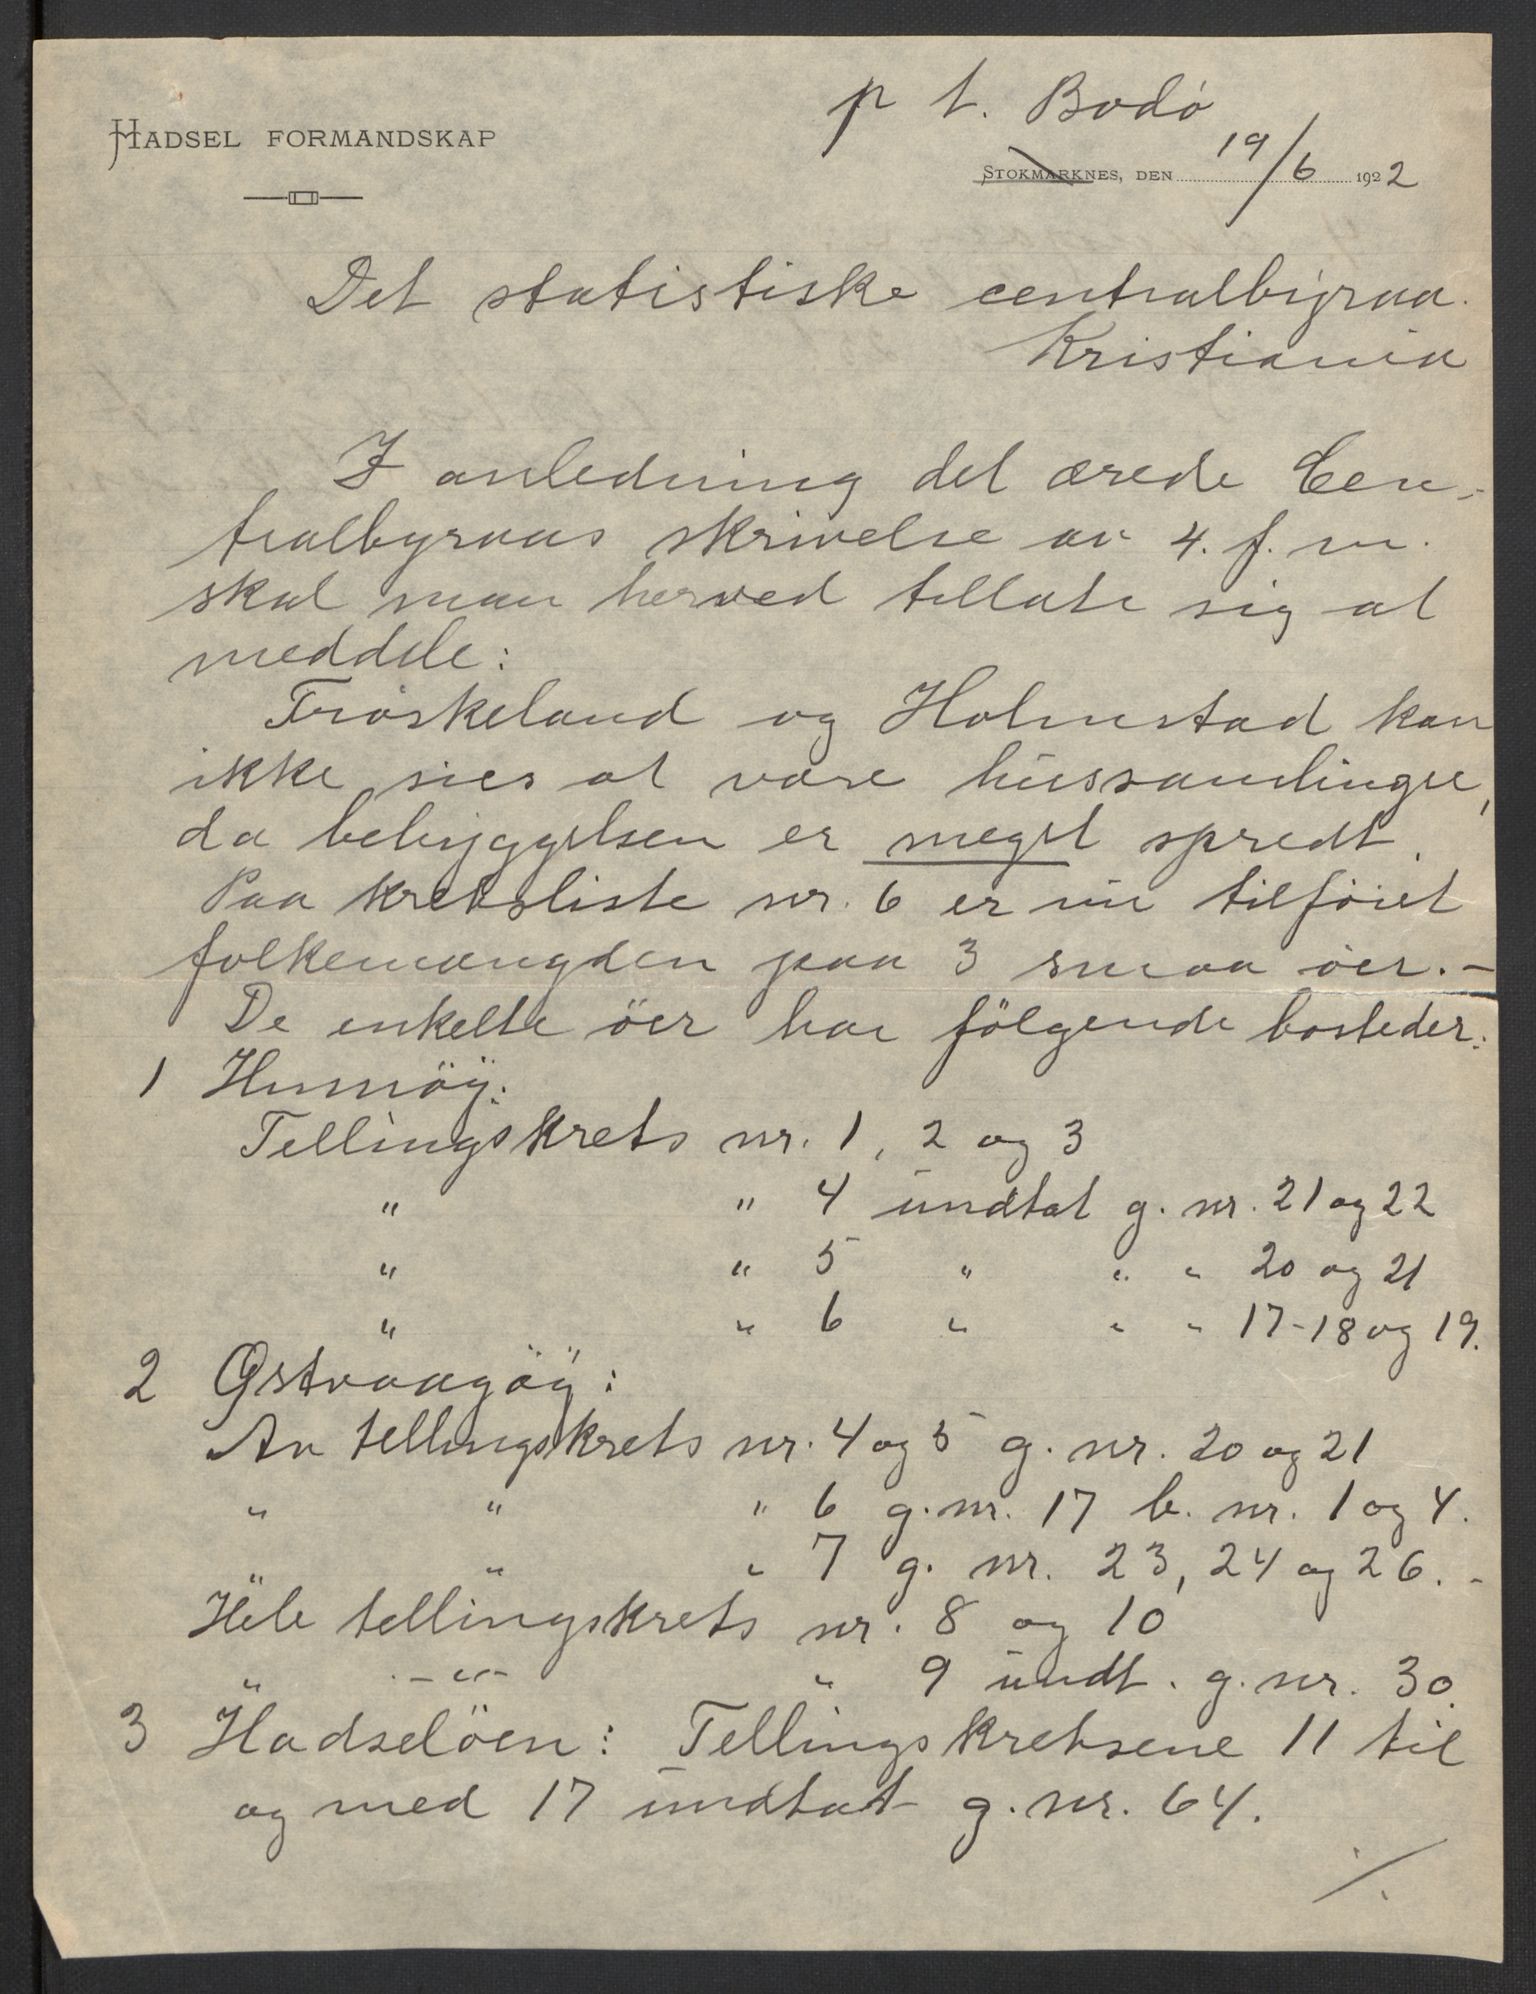 p t. Bodö
HADSEL FORMANDSKAP
STOKMARKNES, DEN 19/6 1922
Det statistiske centralbyraa.
Kristiania
I anledning det ærede Cen-
tralbyraas skrivelse av 4. f. m.
skal man herved tillate sig at
meddele:
Fröskeland og Holmstad kan
ikke sies at være hussamlinger,
da bebyggelsen er meget spredt.
Paa kretsliste nr. 6 er nu tilföiet
folkemængden paa 3 smaa öer. -
De enkelte öer har fölgende bosteder:
1 Hinnöy:
Tellingskrets nr. 1, 2 og 3
" " 4 undtat g. nr. 21 og 22
" " 5 " " " 20 og 21
" " 6 " " " 17-18 og 19.
2 Østvaagöy:
Av tellingskrets nr. 4 og 5 g. nr. 20 og 21
" " " 6 g. nr. 17 b. nr. 1 og 4.
" " " 7 g. nr. 23, 24 og 26. -
Hele tellingskrets nr. 8 og 10
" -"- " 9 undt. g. nr. 30.
3 Hadselöen: Tellingskretsene 11 til
og med 17 undtat g. nr. 64.
./.